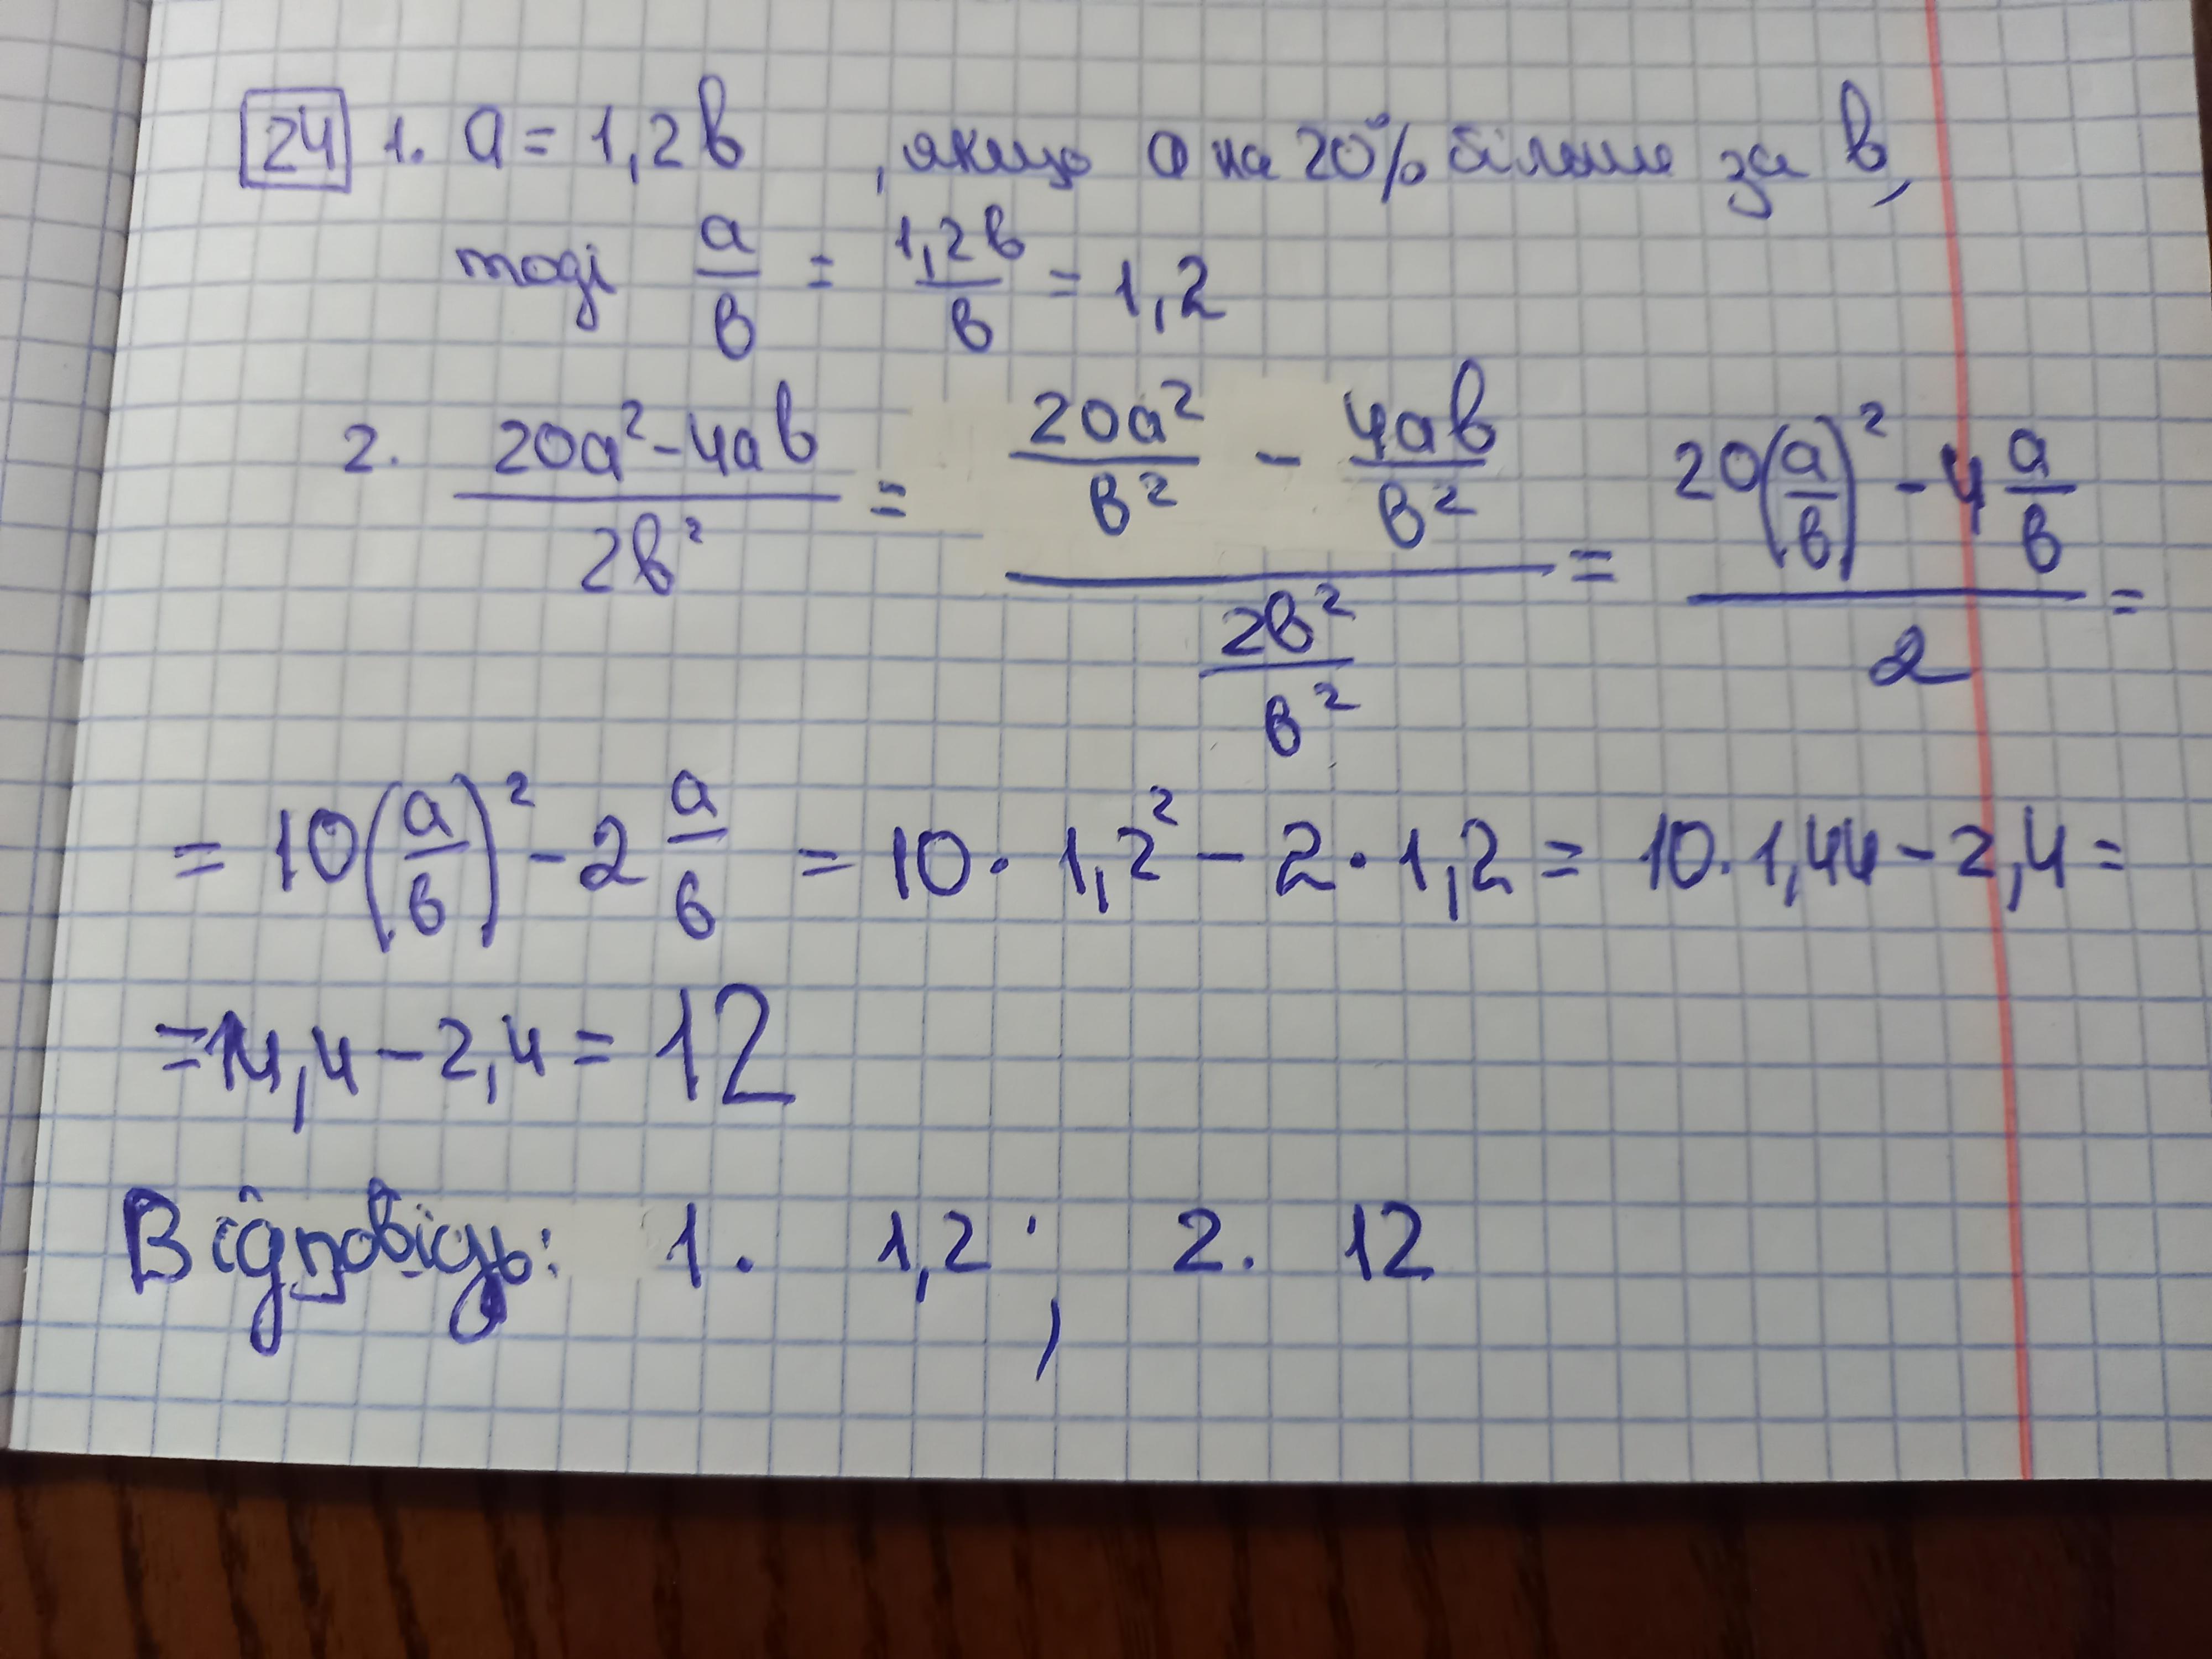 24 1. a = 1,2b , якщо a на 20% більше за b,
тоді a/b = 1,2b/b = 1,2
2. (20a² - 4ab)/(2b²) = (20a²/b² - 4ab/b²)/(2b²/b²) = (20(a/b)² - 4 a/b)/2 =
= 10(a/b)² - 2 a/b = 10 · 1,2² - 2 · 1,2 = 10 · 1,44 - 2,4 =
= 14,4 - 2,4 = 12
Відповідь: 1. 1,2 ; 2. 12